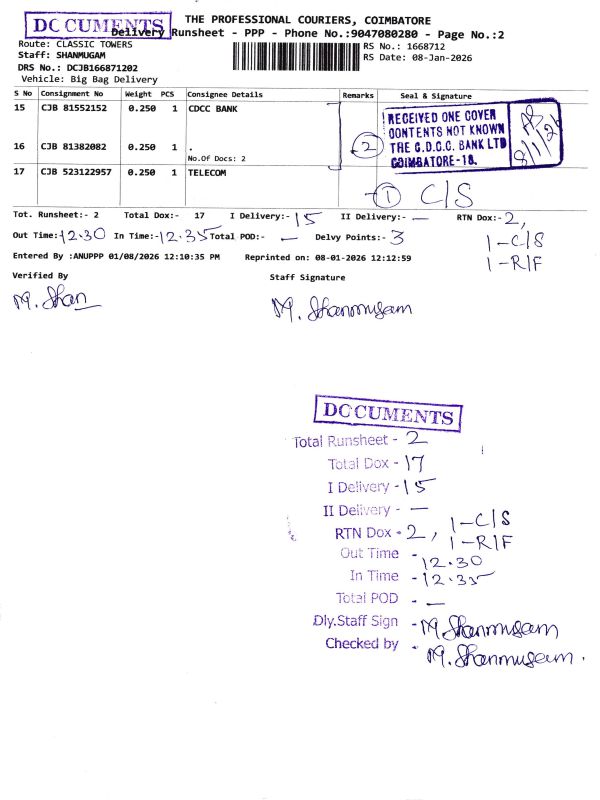 DOCUMENTS
THE PROFESSIONAL COURIERS, COIMBATORE
Delivery Runsheet - PPP - Phone No.:9047080280 - Page No.:2
Route: CLASSIC TOWERS
RS No.: 1668712
Staff: SHANMUGAM
RS Date: 08-Jan-2026
DRS No.: DCJB166871202
Vehicle: Big Bag Delivery
S No Consignment No Weight PCS Consignee Details Remarks Seal & Signature
15 CJB 81552152 0.250 1 CDCC BANK
RECEIVED ONE COVER
CONTENTS NOT KNOWN
THE C.D.C.C. BANK LTD
COIMBATORE-18.
8/1/26
16 CJB 81382082 0.250 1 . 2
No.Of Docs: 2
17 CJB 523122957 0.250 1 TELECOM
1 C/S
Tot. Runsheet:- 2 Total Dox:- 17 I Delivery:- 15 II Delivery:- — RTN Dox:- 2,
1-C/S
1-R/F
Out Time:-12.30 In Time:-12.35 Total POD:- — Delvy Points:- 3
Entered By :ANUPPP 01/08/2026 12:10:35 PM Reprinted on: 08-01-2026 12:12:59
Verified By Staff Signature
M. Shan M. Shanmugam
DOCUMENTS
Total Runsheet - 2
Total Dox - 17
I Delivery - 15
II Delivery - —
RTN Dox - 2, 1-C/S
1-R/F
Out Time - 12.30
In Time - 12.35
Total POD - —
Dly.Staff Sign - M. Shanmugam
Checked by - M. Shanmugam.